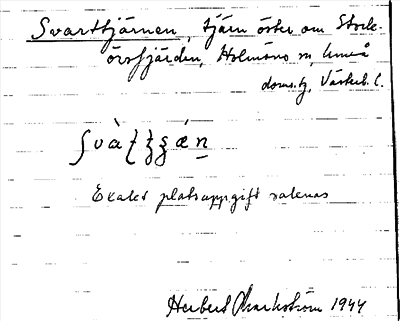 Svarttjärnen, tjärn öster om Stock-
örsfjärden, Holmöns sn, Umeå
doms.tg, Västerb. l.
Exakt platsuppgift saknas
Herbert Markström 1944